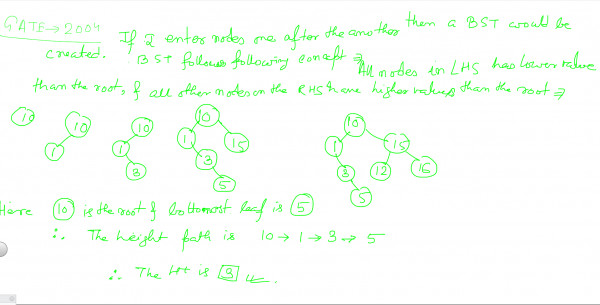 GATE → 2004
If I enter nodes one after the another then a BST would be
created. BST follows following concept ⇒ All nodes in LHS has lower value
than the root, & all other nodes on the RHS have higher values than the root ⇒
10 10 10 10 10
1 1 1 15 1 15
3 3 3 12 16
5 5
Here 10 is the root & bottommost leaf is 5
∴ The height path is 10 → 1 → 3 → 5
∴ The Ht is 3